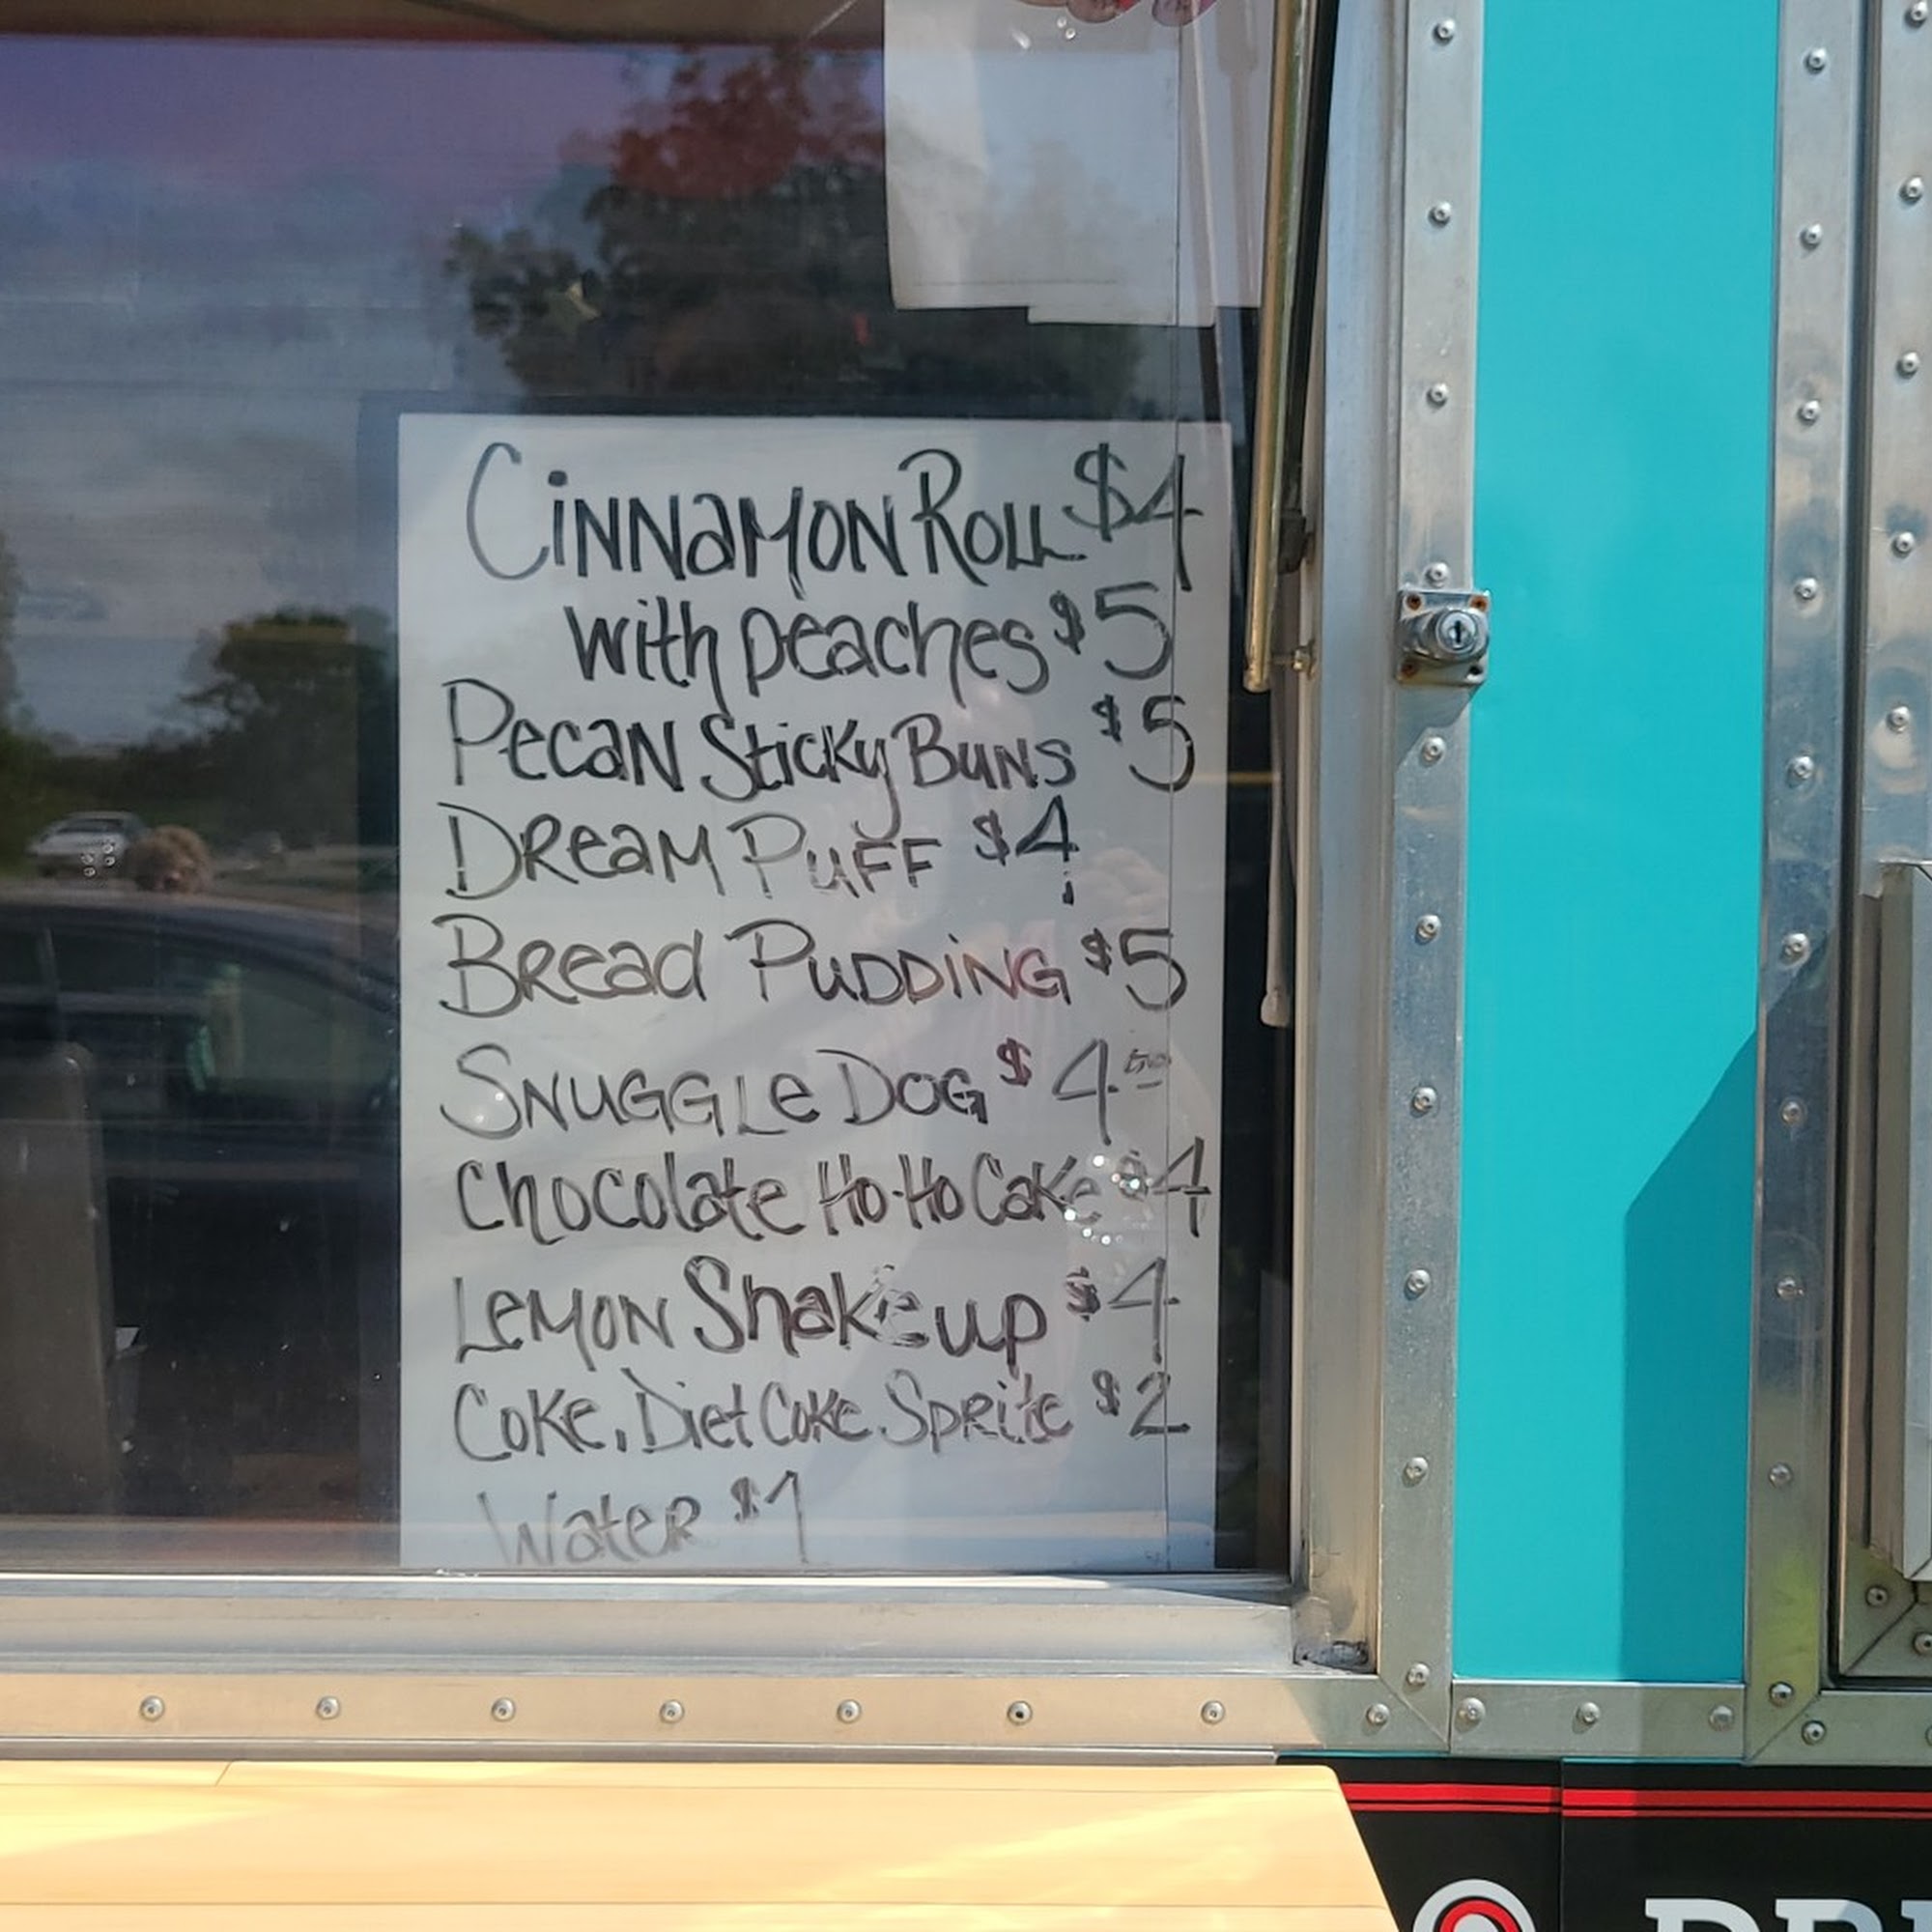 Cinnamon Roll $4
with peaches $5
Pecan Sticky Buns $5
Dream Puff $4
Bread Pudding $5
Snuggle Dog $4
Chocolate Ho-Ho Cake $4
Lemon Shake up $4
Coke, Diet Coke Sprite $2
Water $1